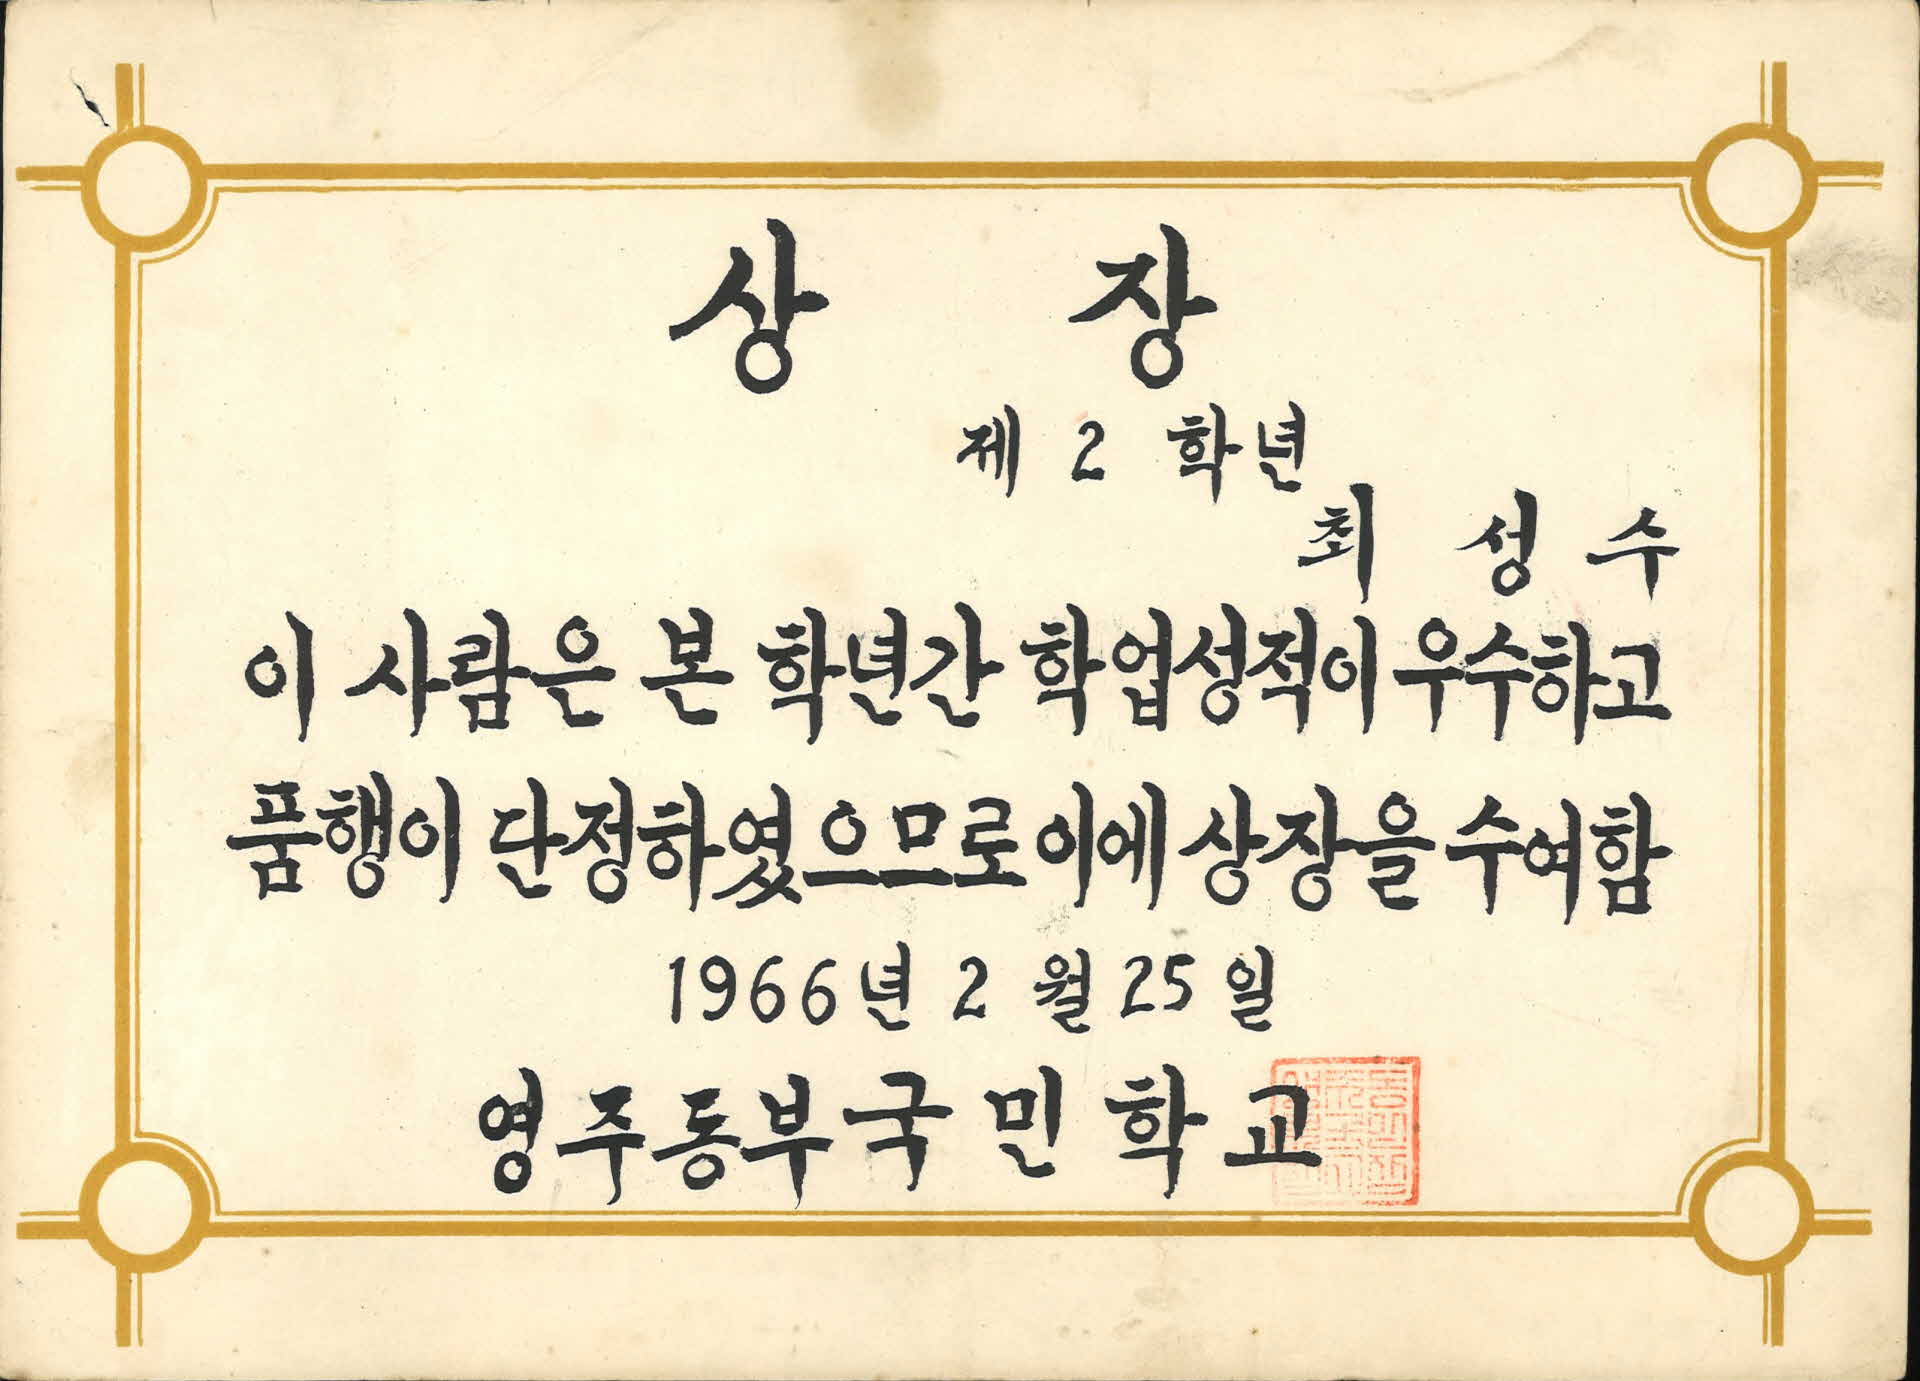 상 장
제 2 학년
최 성 수
이 사람은 본 학년간 학업성적이 우수하고
품행이 단정하였으므로 이에 상장을 수여함
1966년 2 월 25 일
영주동부국민학교